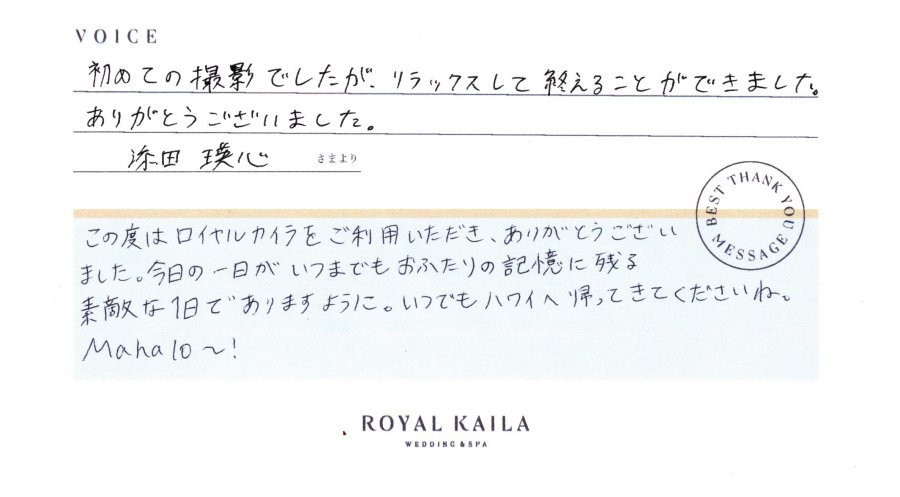 VOICE
初めての撮影でしたが、リラックスして終えることができました。
ありがとうございました。
添田 瑛心 さまより
BEST THANK YOU MESSAGE
この度はロイヤルカイラをご利用いただき、ありがとうござい
ました。今日の一日がいつまでもおふたりの記憶に残る
素敵な1日でありますように。いつでもハワイへ帰ってきてくださいね。
Mahalo〜!
ROYAL KAILA
WEDDING & SPA